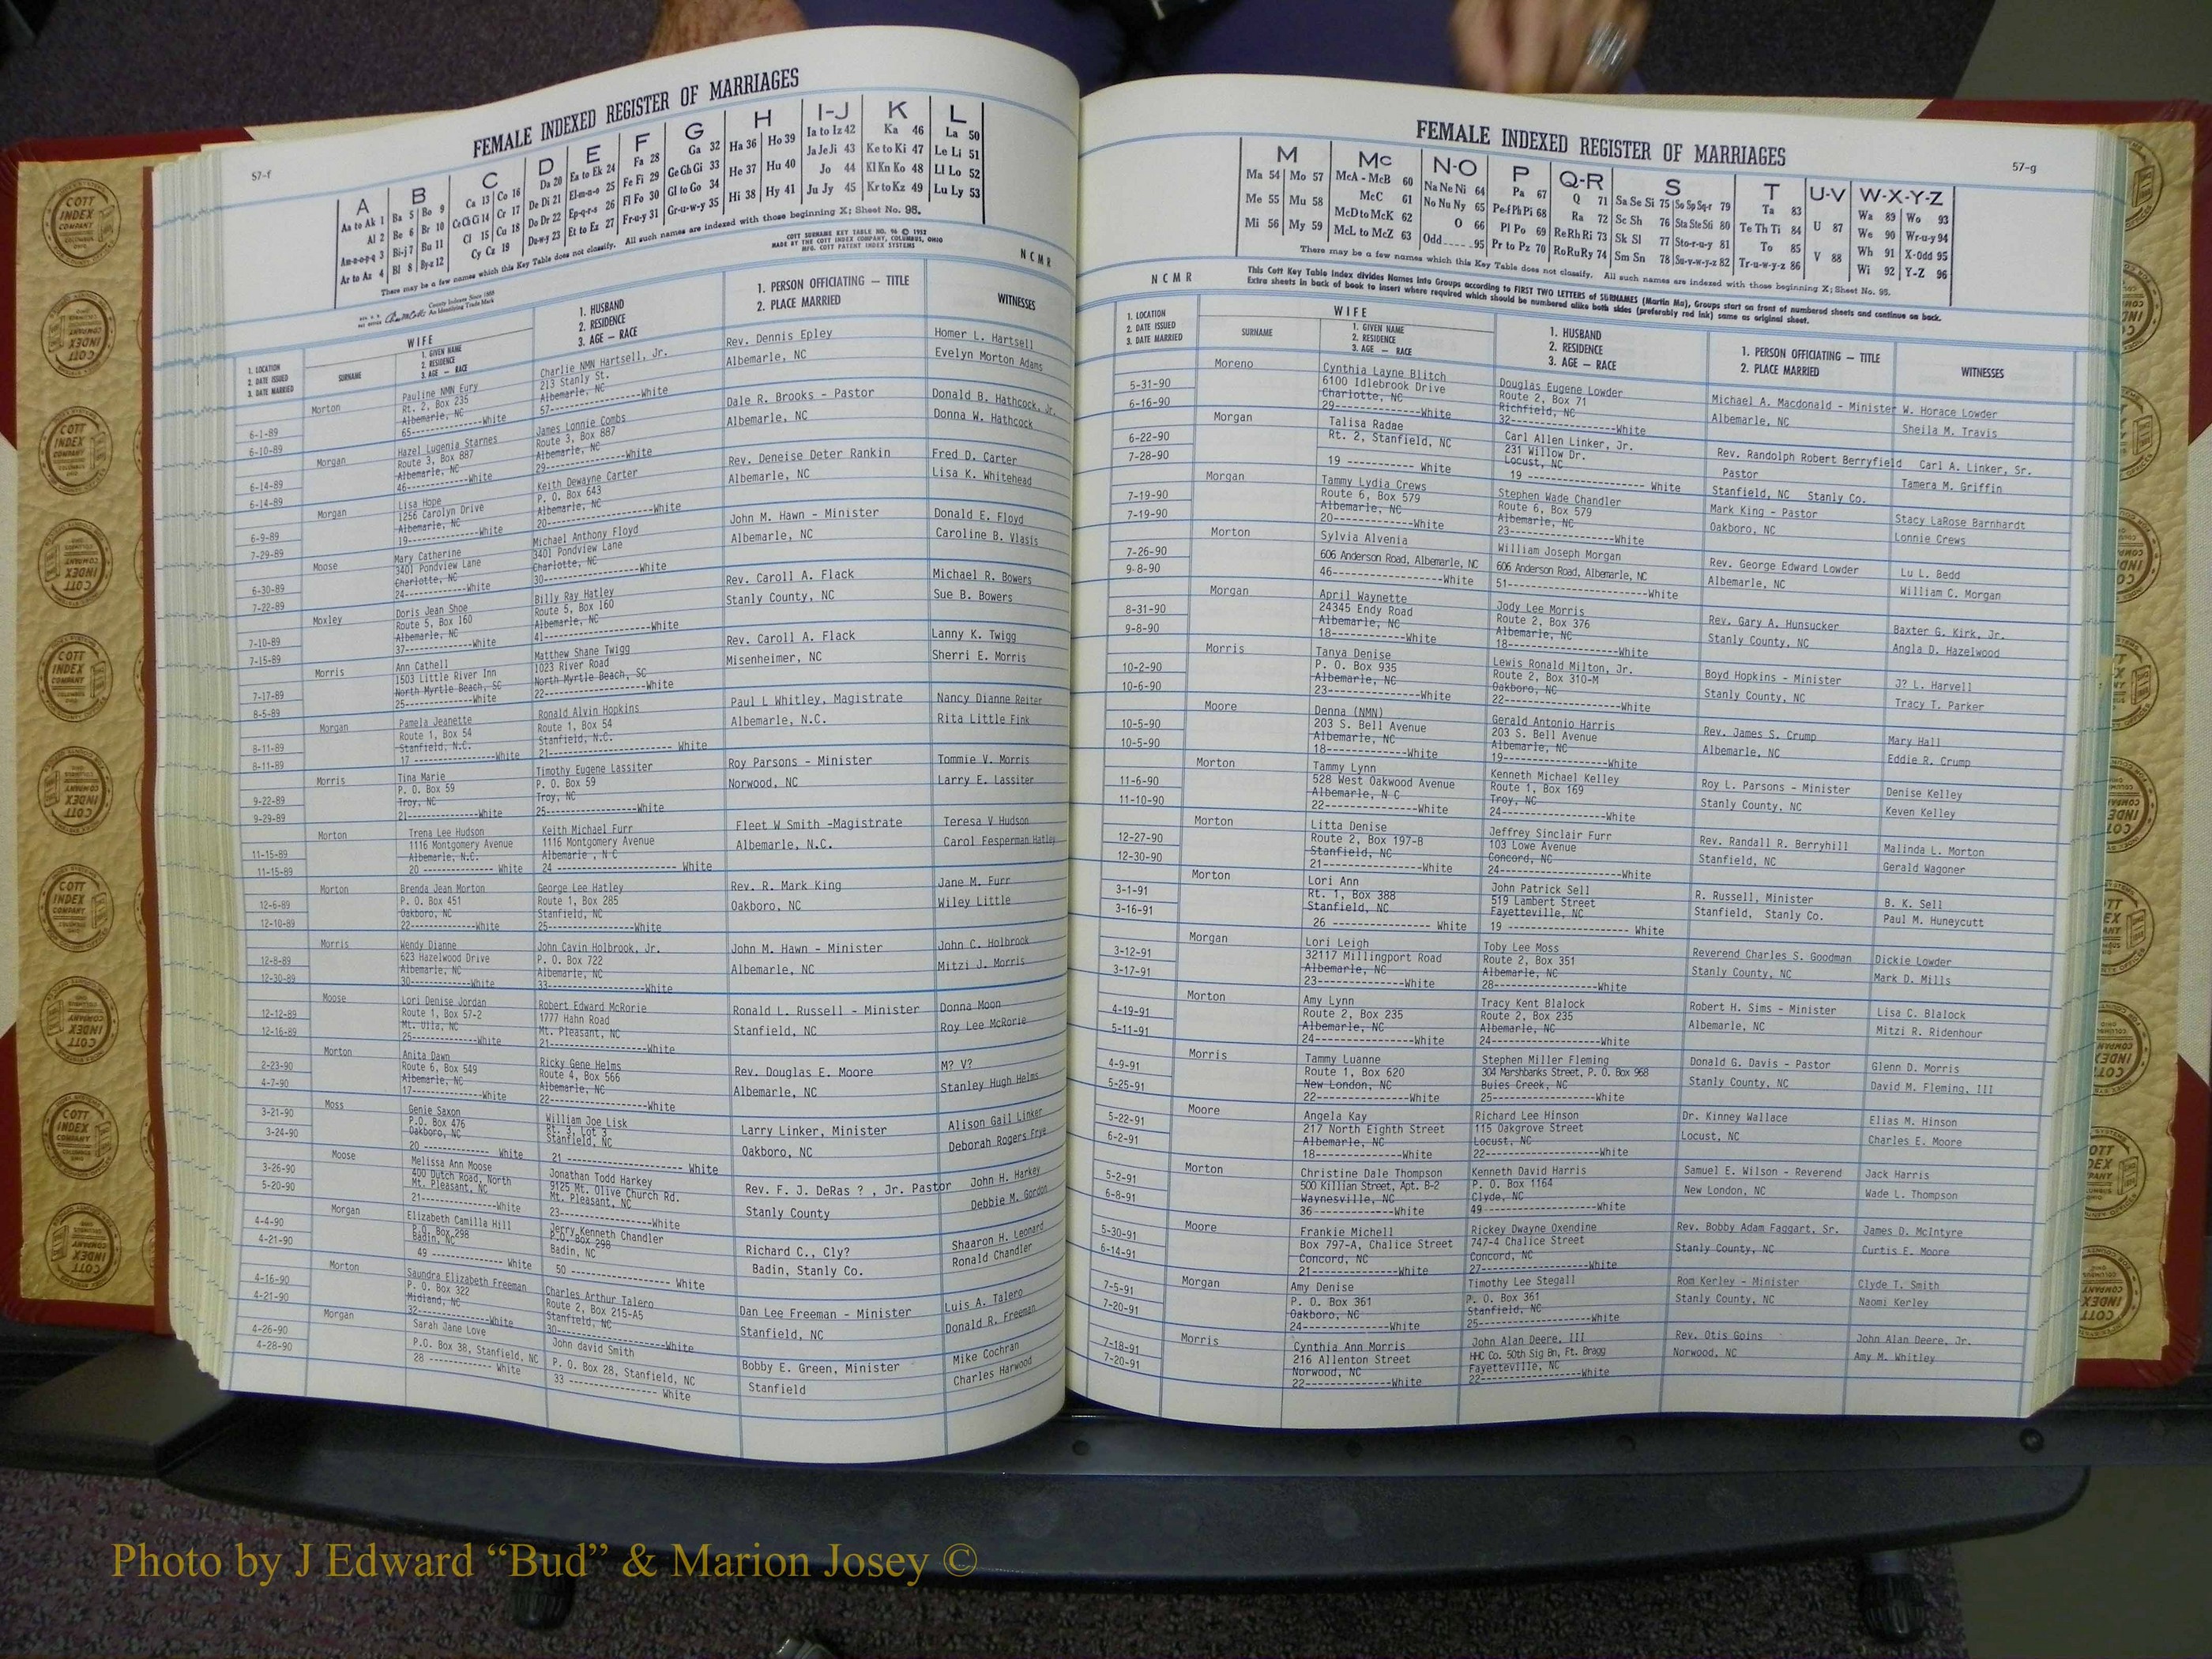 57-f
FEMALE INDEXED REGISTER OF MARRIAGES
A B C D E F G H I-J K L
Aa to Ak 1 Ba 5 Bo 9 Ca 13 Co 16 Da 20 Ea to Ek 24 Fa 28 Ga 32 Ha 36 Ho 39 Ia to Iz 42 Ka 46 La 50
Al 2 Be 6 Br 10 Ce Ch Ci 14 Cr 17 De Di 21 El-m-n-o 25 Fe Fi 29 Ge Gh Gi 33 He 37 Hu 40 Ja Je Ji 43 Ke to Ki 47 Le Li 51
Am-n-o-p-q 3 Bi-j 7 Bu 11 Cl 15 Cu 18 Do Dr 22 Ep-q-r-s 26 Fl Fo 30 Gl to Go 34 Hi 38 Hy 41 Jo 44 Kl Kn Ko 48 Ll Lo 52
Ar to Az 4 Bl 8 By-z 12 Cy Cz 19 Du-w-y 23 Et to Ez 27 Fr-u-y 31 Gr-u-w-y 35 Ju Jy 45 Kr to Kz 49 Lu Ly 53
There may be a few names which this Key Table does not classify. All such names are indexed with those beginning X; Sheet No. 95.
COTT SURNAME KEY TABLE NO. 96 © 1952
MADE BY THE COTT INDEX COMPANY, COLUMBUS, OHIO
MFG. COTT PATENT INDEX SYSTEMS
County Indexes Since 1888
An Identifying Trade Mark
N C M R
1. LOCATION
2. DATE ISSUED
3. DATE MARRIED
WIFE
SURNAME
1. GIVEN NAME
2. RESIDENCE
3. AGE — RACE
1. HUSBAND
2. RESIDENCE
3. AGE — RACE
1. PERSON OFFICIATING — TITLE
2. PLACE MARRIED
WITNESSES
Morton Pauline NMN Eury Charlie NMN Hartsell, Jr. Rev. Dennis Epley Homer L. Hartsell
Rt. 2, Box 235 213 Stanly St. Albemarle, NC Evelyn Morton Adams
6-1-89 Albemarle, NC Albemarle, NC
6-10-89 65-----------White 57-----------White
Morgan Hazel Lugenia Starnes James Lonnie Combs Dale R. Brooks - Pastor Donald B. Hathcock, Jr.
Route 3, Box 887 Route 3, Box 887 Albemarle, NC Donna W. Hathcock
6-14-89 Albemarle, NC Albemarle, NC
6-14-89 46-----------White 29-----------White
Morgan Lisa Hope Keith Dewayne Carter Rev. Deneise Deter Rankin Fred D. Carter
1256 Carolyn Drive P. O. Box 643 Albemarle, NC Lisa K. Whitehead
6-9-89 Albemarle, NC Albemarle, NC
7-29-89 19-----------White 20-----------White
Moose Mary Catherine Michael Anthony Floyd John M. Hawn - Minister Donald E. Floyd
3401 Pondview Lane 3401 Pondview Lane Albemarle, NC Caroline B. Vlasis
6-30-89 Charlotte, NC Charlotte, NC
7-22-89 24-----------White 30-----------White
Moxley Doris Jean Shoe Billy Ray Hatley Rev. Caroll A. Flack Michael R. Bowers
Route 5, Box 160 Route 5, Box 160 Stanly County, NC Sue B. Bowers
7-10-89 Albemarle, NC Albemarle, NC
7-15-89 37-----------White 41-----------White
Morris Ann Cathell Matthew Shane Twigg Rev. Caroll A. Flack Lanny K. Twigg
1503 Little River Inn 1023 River Road Misenheimer, NC Sherri E. Morris
7-17-89 North Myrtle Beach, SC North Myrtle Beach, SC
8-5-89 25-----------White 22-----------White
Morgan Pamela Jeanette Ronald Alvin Hopkins Paul L Whitley, Magistrate Nancy Dianne Reiter
Route 1, Box 54 Route 1, Box 54 Albemarle, N.C. Rita Little Fink
8-11-89 Stanfield, N.C. Stanfield, N.C.
8-11-89 17 ----------- White 21----------- White
Morris Tina Marie Timothy Eugene Lassiter Roy Parsons - Minister Tommie V. Morris
P. O. Box 59 P. O. Box 59 Norwood, NC Larry E. Lassiter
9-22-89 Troy, NC Troy, NC
9-29-89 21-----------White 25-----------White
Morton Trena Lee Hudson Keith Michael Furr Fleet W Smith -Magistrate Teresa V Hudson
1116 Montgomery Avenue 1116 Montgomery Avenue Albemarle, N.C. Carol Fesperman Hatley
11-15-89 Albemarle, N.C. Albemarle , N C
11-15-89 20 ----------- White 24 ----------- White
Morton Brenda Jean Morton George Lee Hatley Rev. R. Mark King Jane M. Furr
P. O. Box 451 Route 1, Box 285 Oakboro, NC Wiley Little
12-6-89 Oakboro, NC Stanfield, NC
12-10-89 22-----------White 25-----------White
Morris Wendy Dianne John Cavin Holbrook, Jr. John M. Hawn - Minister John C. Holbrook
623 Hazelwood Drive P. O. Box 722 Albemarle, NC Mitzi J. Morris
12-8-89 Albemarle, NC Albemarle, NC
12-30-89 30-----------White 33-----------White
Moose Lori Denise Jordan Robert Edward McRorie Ronald L. Russell - Minister Donna Moon
Route 1, Box 57-2 1777 Hahn Road Stanfield, NC Roy Lee McRorie
12-12-89 Mt. Ulla, NC Mt. Pleasant, NC
12-16-89 25-----------White 21-----------White
Morton Anita Dawn Ricky Gene Helms Rev. Douglas E. Moore M? V?
Route 6, Box 549 Route 4, Box 566 Albemarle, NC Stanley Hugh Helms
2-23-90 Albemarle, NC Albemarle, NC
4-7-90 17-----------White 22-----------White
Moss Genie Saxon William Joe Lisk Larry Linker, Minister Alison Gail Linker
P.O. Box 476 Rt. 3, Lot 3 Oakboro, NC Deborah Rogers Frye
3-21-90 Oakboro, NC Stanfield, NC
3-24-90 20 ----------- White 21 ----------- White
Moose Melissa Ann Moose Jonathan Todd Harkey Rev. F. J. DeRas ? , Jr. Pastor John H. Harkey
400 Dutch Road, North 9125 Mt. Olive Church Rd. Stanly County Debbie M. Gordon
3-26-90 Mt. Pleasant, NC Mt. Pleasant, NC
5-20-90 21-----------White 23-----------White
Morgan Elizabeth Camilla Hill Jerry Kenneth Chandler Richard C., Cly? Shaaron H. Leonard
P.O. Box 298 P.O. Box 298 Badin, Stanly Co. Ronald Chandler
4-4-90 Badin, NC Badin, NC
4-21-90 49 ----------- White 50 ----------- White
Morton Saundra Elizabeth Freeman Charles Arthur Talero Dan Lee Freeman - Minister Luis A. Talero
P. O. Box 322 Route 2, Box 215-A5 Stanfield, NC Donald R. Freeman
4-16-90 Midland, NC Stanfield, NC
4-21-90 32-----------White 30-----------White
Morgan Sarah Jane Love John david Smith Bobby E. Green, Minister Mike Cochran
4-26-90 P.O. Box 38, Stanfield, NC P. O. Box 28, Stanfield, NC Stanfield Charles Harwood
4-28-90 28 ----------- White 33 ----------- White
57-g
FEMALE INDEXED REGISTER OF MARRIAGES
M Mc N-O P Q-R S T U-V W-X-Y-Z
Ma 54 Mo 57 McA - McB 60 Na Ne Ni 64 Pa 67 Q 71 Sa Se Si 75 So Sp Sq-r 79 Ta 83 U 87 Wa 89 Wo 93
Me 55 Mu 58 McC 61 No Nu Ny 65 Pe-f Ph Pi 68 Ra 72 Sc Sh 76 Sta Ste Sti 80 Te Th Ti 84 V 88 We 90 Wr-u-y 94
Mi 56 My 59 McD to McK 62 O 66 Pl Po 69 Re Rh Ri 73 Sk Sl 77 Sto-r-u-y 81 To 85 Wh 91 X-Odd 95
McL to McZ 63 Odd 95 Pr to Pz 70 Ro Ru Ry 74 Sm Sn 78 Su-v-w-y-z 82 Tr-u-w-y-z 86 Wi 92 Y-Z 96
There may be a few names which this Key Table does not classify. All such names are indexed with those beginning X; Sheet No. 95.
This Cott Key Table Index divides Names into Groups according to FIRST TWO LETTERS of SURNAMES (Martin Ma), Groups start on front of numbered sheets and continue on back.
Extra sheets in back of book to insert where required which should be numbered alike both sides (preferably red ink) same as original sheet.
N C M R
1. LOCATION
2. DATE ISSUED
3. DATE MARRIED
WIFE
SURNAME
1. GIVEN NAME
2. RESIDENCE
3. AGE — RACE
1. HUSBAND
2. RESIDENCE
3. AGE — RACE
1. PERSON OFFICIATING — TITLE
2. PLACE MARRIED
WITNESSES
Moreno Cynthia Layne Blitch Douglas Eugene Lowder Michael A. Macdonald - Minister W. Horace Lowder
5-31-90 6100 Idlebrook Drive Route 2, Box 71 Albemarle, NC Sheila M. Travis
6-16-90 Charlotte, NC Richfield, NC
29-----------White 32-----------White
Morgan Talisa Radae Carl Allen Linker, Jr. Rev. Randolph Robert Berryfield Carl A. Linker, Sr.
6-22-90 Rt. 2, Stanfield, NC 231 Willow Dr. Pastor Tamera M. Griffin
7-28-90 Locust, NC Stanfield, NC Stanly Co.
19 ----------- White 19 ----------- White
Morgan Tammy Lydia Crews Stephen Wade Chandler Mark King - Pastor Stacy LaRose Barnhardt
7-19-90 Route 6, Box 579 Route 6, Box 579 Oakboro, NC Lonnie Crews
7-19-90 Albemarle, NC Albemarle, NC
20-----------White 23-----------White
Morton Sylvia Alvenia William Joseph Morgan Rev. George Edward Lowder Lu L. Bedd
7-26-90 606 Anderson Road, Albemarle, NC 606 Anderson Road, Albemarle, NC Albemarle, NC William C. Morgan
9-8-90 46-----------White 51-----------White
Morgan April Waynette Jody Lee Morris Rev. Gary A. Hunsucker Baxter G. Kirk, Jr.
8-31-90 24345 Endy Road Route 2, Box 376 Stanly County, NC Angla D. Hazelwood
9-8-90 Albemarle, NC Albemarle, NC
18-----------White 18-----------White
Morris Tanya Denise Lewis Ronald Milton, Jr. Boyd Hopkins - Minister J? L. Harvell
10-2-90 P. O. Box 935 Route 2, Box 310-M Stanly County, NC Tracy T. Parker
10-6-90 Albemarle, NC Oakboro, NC
23-----------White 22-----------White
Moore Denna (NMN) Gerald Antonio Harris Rev. James S. Crump Mary Hall
10-5-90 203 S. Bell Avenue 203 S. Bell Avenue Albemarle, NC Eddie R. Crump
10-5-90 Albemarle, NC Albemarle, NC
18-----------White 19-----------White
Morton Tammy Lynn Kenneth Michael Kelley Roy L. Parsons - Minister Denise Kelley
11-6-90 528 West Oakwood Avenue Route 1, Box 169 Stanly County, NC Keven Kelley
11-10-90 Albemarle, N C Troy, NC
22-----------White 24-----------White
Morton Litta Denise Jeffrey Sinclair Furr Rev. Randall R. Berryhill Malinda L. Morton
12-27-90 Route 2, Box 197-B 103 Lowe Avenue Stanfield, NC Gerald Wagoner
12-30-90 Stanfield, NC Concord, NC
21-----------White 24-----------White
Morton Lori Ann John Patrick Sell R. Russell, Minister B. K. Sell
3-1-91 Rt. 1, Box 388 519 Lambert Street Stanfield, Stanly Co. Paul M. Huneycutt
3-16-91 Stanfield, NC Fayetteville, NC
26 ----------- White 19 ----------- White
Morgan Lori Leigh Toby Lee Moss Reverend Charles S. Goodman Dickie Lowder
3-12-91 32117 Millingport Road Route 2, Box 351 Stanly County, NC Mark D. Mills
3-17-91 Albemarle, NC Albemarle, NC
23-----------White 28-----------White
Morton Amy Lynn Tracy Kent Blalock Robert H. Sims - Minister Lisa C. Blalock
4-19-91 Route 2, Box 235 Route 2, Box 235 Albemarle, NC Mitzi R. Ridenhour
5-11-91 Albemarle, NC Albemarle, NC
24-----------White 24-----------White
Morris Tammy Luanne Stephen Miller Fleming Donald G. Davis - Pastor Glenn D. Morris
4-9-91 Route 1, Box 620 304 Marshbanks Street, P. O. Box 968 Stanly County, NC David M. Fleming, III
5-25-91 New London, NC Buies Creek, NC
22-----------White 25-----------White
Moore Angela Kay Richard Lee Hinson Dr. Kinney Wallace Elias M. Hinson
5-22-91 217 North Eighth Street 115 Oakgrove Street Locust, NC Charles E. Moore
6-2-91 Albemarle, NC Locust, NC
18-----------White 22-----------White
Morton Christine Dale Thompson Kenneth David Harris Samuel E. Wilson - Reverend Jack Harris
5-2-91 500 Killian Street, Apt. B-2 P. O. Box 1164 New London, NC Wade L. Thompson
6-8-91 Waynesville, NC Clyde, NC
36-----------White 49-----------White
Moore Frankie Michell Rickey Dwayne Oxendine Rev. Bobby Adam Faggart, Sr. James D. McIntyre
5-30-91 Box 797-A, Chalice Street 747-4 Chalice Street Stanly County, NC Curtis E. Moore
6-14-91 Concord, NC Concord, NC
21-----------White 27-----------White
Morgan Amy Denise Timothy Lee Stegall Rom Kerley - Minister Clyde T. Smith
7-5-91 P. O. Box 361 P. O. Box 361 Stanly County, NC Naomi Kerley
7-20-91 Oakboro, NC Stanfield, NC
24-----------White 25-----------White
Morris Cynthia Ann Morris John Alan Deere, III Rev. Otis Goins John Alan Deere, Jr.
7-18-91 216 Allenton Street HHC Co. 50th Sig Bn, Ft. Bragg Norwood, NC Amy M. Whitley
7-20-91 Norwood, NC Fayetteville, NC
22-----------White 22-----------White
COTT INDEX COMPANY COLUMBUS OHIO
Photo by J Edward “Bud” & Marion Josey ©